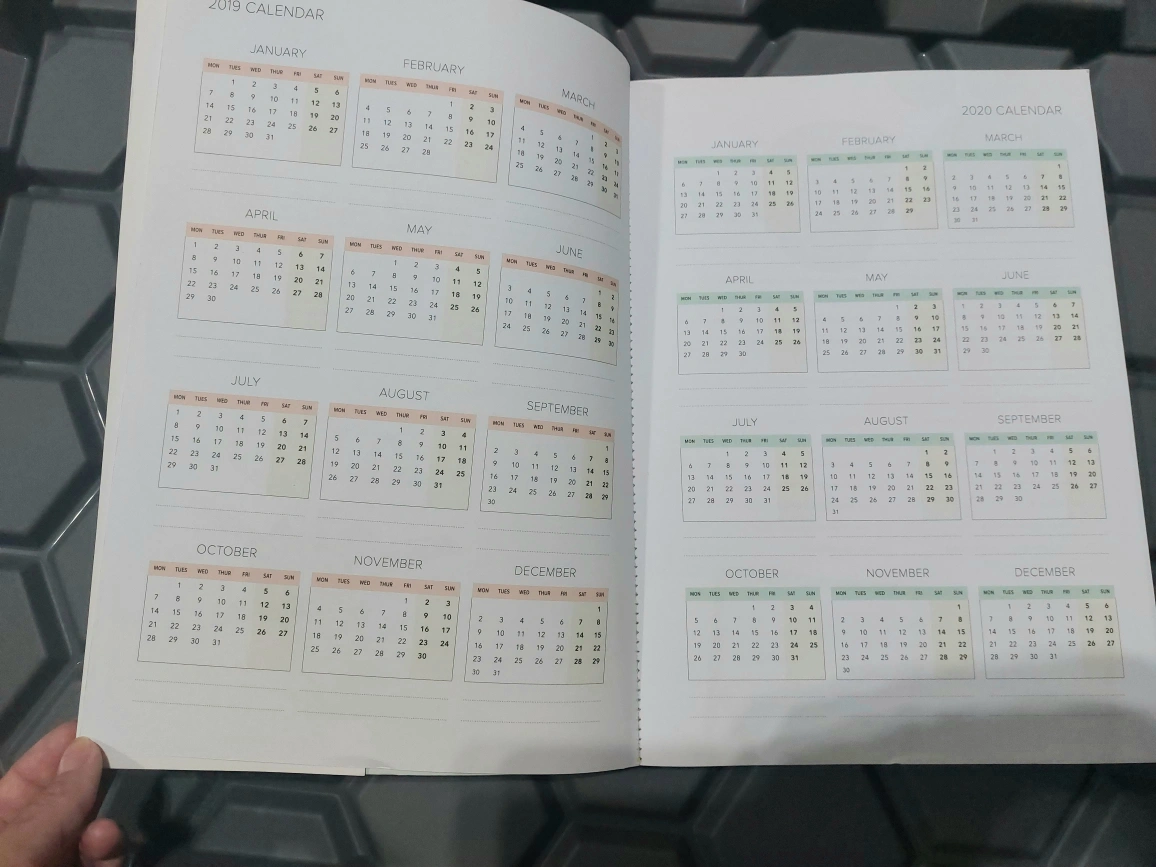 2019 CALENDAR
JANUARY
MON TUES WED THUR FRI SAT SUN
1 2 3 4 5 6
7 8 9 10 11 12 13
14 15 16 17 18 19 20
21 22 23 24 25 26 27
28 29 30 31
FEBRUARY
MON TUES WED THUR FRI SAT SUN
1 2 3
4 5 6 7 8 9 10
11 12 13 14 15 16 17
18 19 20 21 22 23 24
25 26 27 28
MARCH
MON TUES WED THUR FRI SAT SUN
1 2 3
4 5 6 7 8 9 10
11 12 13 14 15 16 17
18 19 20 21 22 23 24
25 26 27 28 29 30 31
APRIL
MON TUES WED THUR FRI SAT SUN
1 2 3 4 5 6 7
8 9 10 11 12 13 14
15 16 17 18 19 20 21
22 23 24 25 26 27 28
29 30
MAY
MON TUES WED THUR FRI SAT SUN
1 2 3 4 5
6 7 8 9 10 11 12
13 14 15 16 17 18 19
20 21 22 23 24 25 26
27 28 29 30 31
JUNE
MON TUES WED THUR FRI SAT SUN
1 2
3 4 5 6 7 8 9
10 11 12 13 14 15 16
17 18 19 20 21 22 23
24 25 26 27 28 29 30
JULY
MON TUES WED THUR FRI SAT SUN
1 2 3 4 5 6 7
8 9 10 11 12 13 14
15 16 17 18 19 20 21
22 23 24 25 26 27 28
29 30 31
AUGUST
MON TUES WED THUR FRI SAT SUN
1 2 3 4
5 6 7 8 9 10 11
12 13 14 15 16 17 18
19 20 21 22 23 24 25
26 27 28 29 30 31
SEPTEMBER
MON TUES WED THUR FRI SAT SUN
1
2 3 4 5 6 7 8
9 10 11 12 13 14 15
16 17 18 19 20 21 22
23 24 25 26 27 28 29
30
OCTOBER
MON TUES WED THUR FRI SAT SUN
1 2 3 4 5 6
7 8 9 10 11 12 13
14 15 16 17 18 19 20
21 22 23 24 25 26 27
28 29 30 31
NOVEMBER
MON TUES WED THUR FRI SAT SUN
1 2 3
4 5 6 7 8 9 10
11 12 13 14 15 16 17
18 19 20 21 22 23 24
25 26 27 28 29 30
DECEMBER
MON TUES WED THUR FRI SAT SUN
1
2 3 4 5 6 7 8
9 10 11 12 13 14 15
16 17 18 19 20 21 22
23 24 25 26 27 28 29
30 31
2020 CALENDAR
JANUARY
MON TUES WED THUR FRI SAT SUN
1 2 3 4 5
6 7 8 9 10 11 12
13 14 15 16 17 18 19
20 21 22 23 24 25 26
27 28 29 30 31
FEBRUARY
MON TUES WED THUR FRI SAT SUN
1 2
3 4 5 6 7 8 9
10 11 12 13 14 15 16
17 18 19 20 21 22 23
24 25 26 27 28 29
MARCH
MON TUES WED THUR FRI SAT SUN
1
2 3 4 5 6 7 8
9 10 11 12 13 14 15
16 17 18 19 20 21 22
23 24 25 26 27 28 29
30 31
APRIL
MON TUES WED THUR FRI SAT SUN
1 2 3 4 5
6 7 8 9 10 11 12
13 14 15 16 17 18 19
20 21 22 23 24 25 26
27 28 29 30
MAY
MON TUES WED THUR FRI SAT SUN
1 2 3
4 5 6 7 8 9 10
11 12 13 14 15 16 17
18 19 20 21 22 23 24
25 26 27 28 29 30 31
JUNE
MON TUES WED THUR FRI SAT SUN
1 2 3 4 5 6 7
8 9 10 11 12 13 14
15 16 17 18 19 20 21
22 23 24 25 26 27 28
29 30
JULY
MON TUES WED THUR FRI SAT SUN
1 2 3 4 5
6 7 8 9 10 11 12
13 14 15 16 17 18 19
20 21 22 23 24 25 26
27 28 29 30 31
AUGUST
MON TUES WED THUR FRI SAT SUN
1 2
3 4 5 6 7 8 9
10 11 12 13 14 15 16
17 18 19 20 21 22 23
24 25 26 27 28 29 30
31
SEPTEMBER
MON TUES WED THUR FRI SAT SUN
1 2 3 4 5 6
7 8 9 10 11 12 13
14 15 16 17 18 19 20
21 22 23 24 25 26 27
28 29 30
OCTOBER
MON TUES WED THUR FRI SAT SUN
1 2 3 4
5 6 7 8 9 10 11
12 13 14 15 16 17 18
19 20 21 22 23 24 25
26 27 28 29 30 31
NOVEMBER
MON TUES WED THUR FRI SAT SUN
1
2 3 4 5 6 7 8
9 10 11 12 13 14 15
16 17 18 19 20 21 22
23 24 25 26 27 28 29
30
DECEMBER
MON TUES WED THUR FRI SAT SUN
1 2 3 4 5 6
7 8 9 10 11 12 13
14 15 16 17 18 19 20
21 22 23 24 25 26 27
28 29 30 31